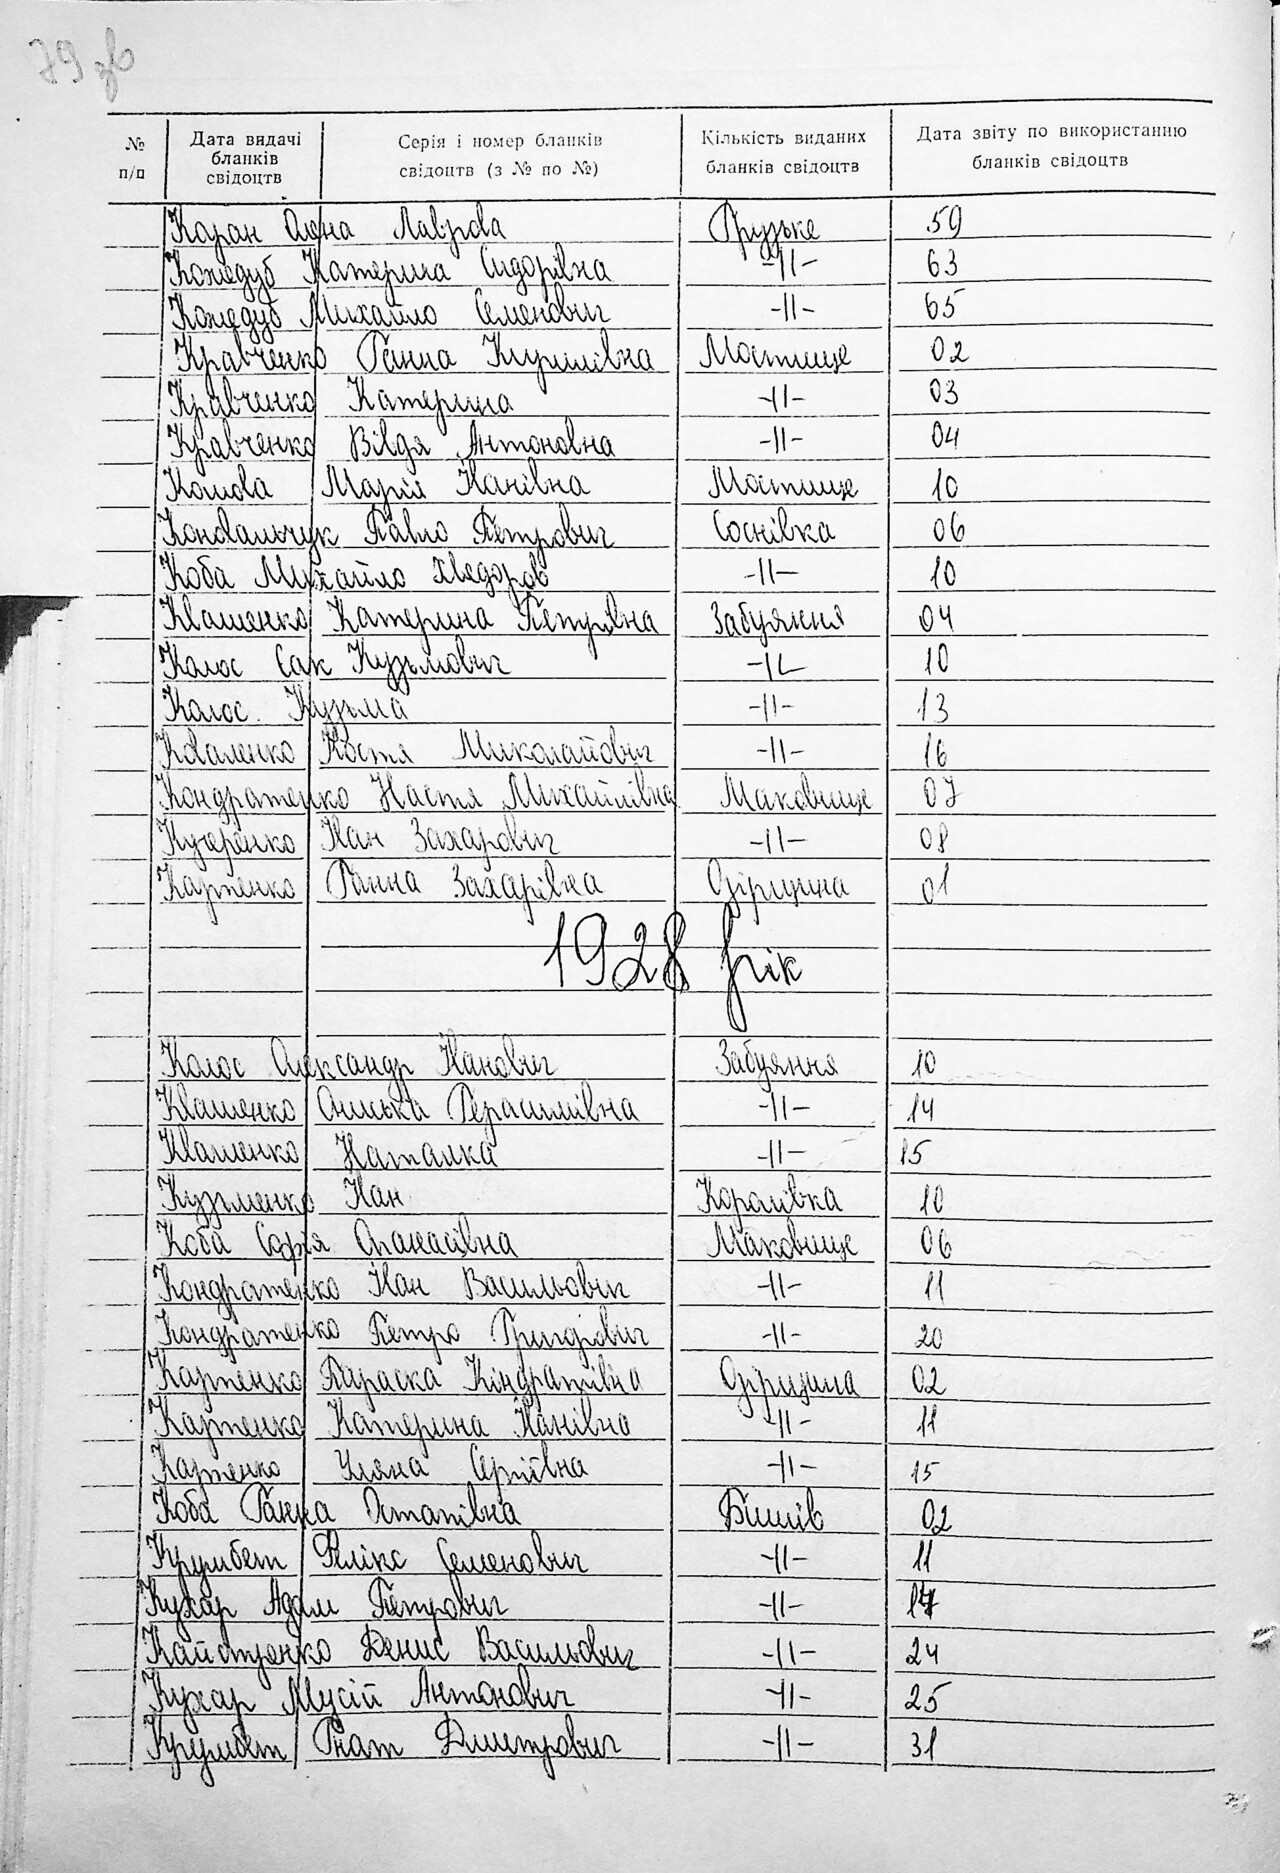 79 зв
№ п/п Дата видачі бланків свідоцтв Серія і номер бланків свідоцтв (з № по №) Кількість виданих бланків свідоцтв Дата звіту по використанню бланків свідоцтв
Каран Олена Лаврова Грузьке 59
Кожедуб Катерина Сидорівна -11- 63
Кожедуб Михайло Семенович -11- 65
Кравченко Ганна Кирилівна Мостище 02
Кравченко Катерина -11- 03
Кравченко Вівдя Антоновна -11- 04
Марія Іванівна Мостище 10
Коновальчук Павло Петрович Соснівка 06
Коба Михайло Хведоров -11- 10
Катерина Петрівна Забуяння 04
Колос Сак Кузьмович -11- 10
Колос Кузьма -11- 13
Коваленко Костя Миколайович -11- 16
Кондратенко Настя Михайлівна Маковище 07
Кучеренко Іван Захарович -11- 08
Карпенко Ганна Захарівна 01
1928 рік
Колос Олександр Іванович Забуяння 10
Квашенко Герасимівна -11- 14
Квашенко Наталка -11- 15
Кузьменко Іван Королівка 10
Коба Софія Опанасівна Маковище 06
Кондратенко Іван Васильович -11- 11
Кондратенко Петро Григорович -11- 20
Карпенко Параска Кіндратівна 02
Карпенко Катерина Іванівна -11- 11
Карпенко Уляна Сергіївна -11- 15
Коба Ганна Остапівна Бишів 02
Крумбет Фелікс Семенович -11- 11
Кухар Адам Петрович -11- 17
Кайстренко Денис Васильович -11- 24
Кухар Мусій Антонович -11- 25
Крумбет Гнат Дмитрович -11- 31